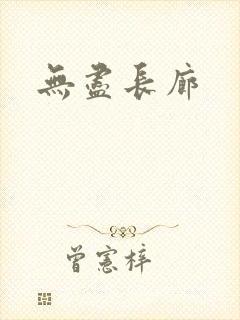 無盡長廊
曾憲梓